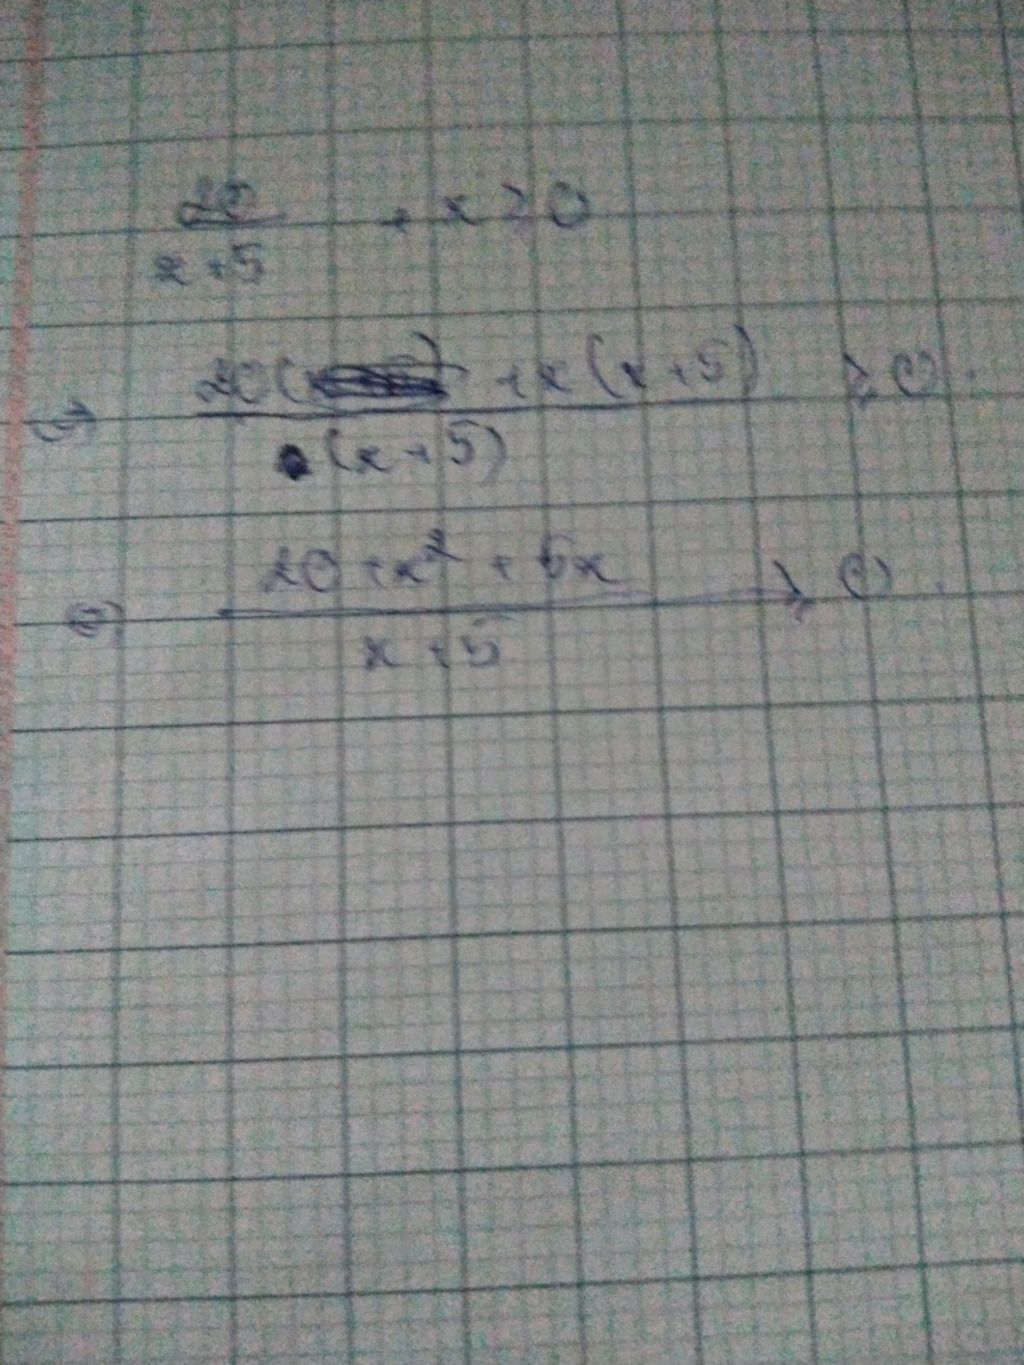 20/(x+5) + x ≥ 0
⇔ (20 + x(x+5))/(x+5) ≥ 0.
⇔ (20 + x² + 5x)/(x+5) ≥ 0.